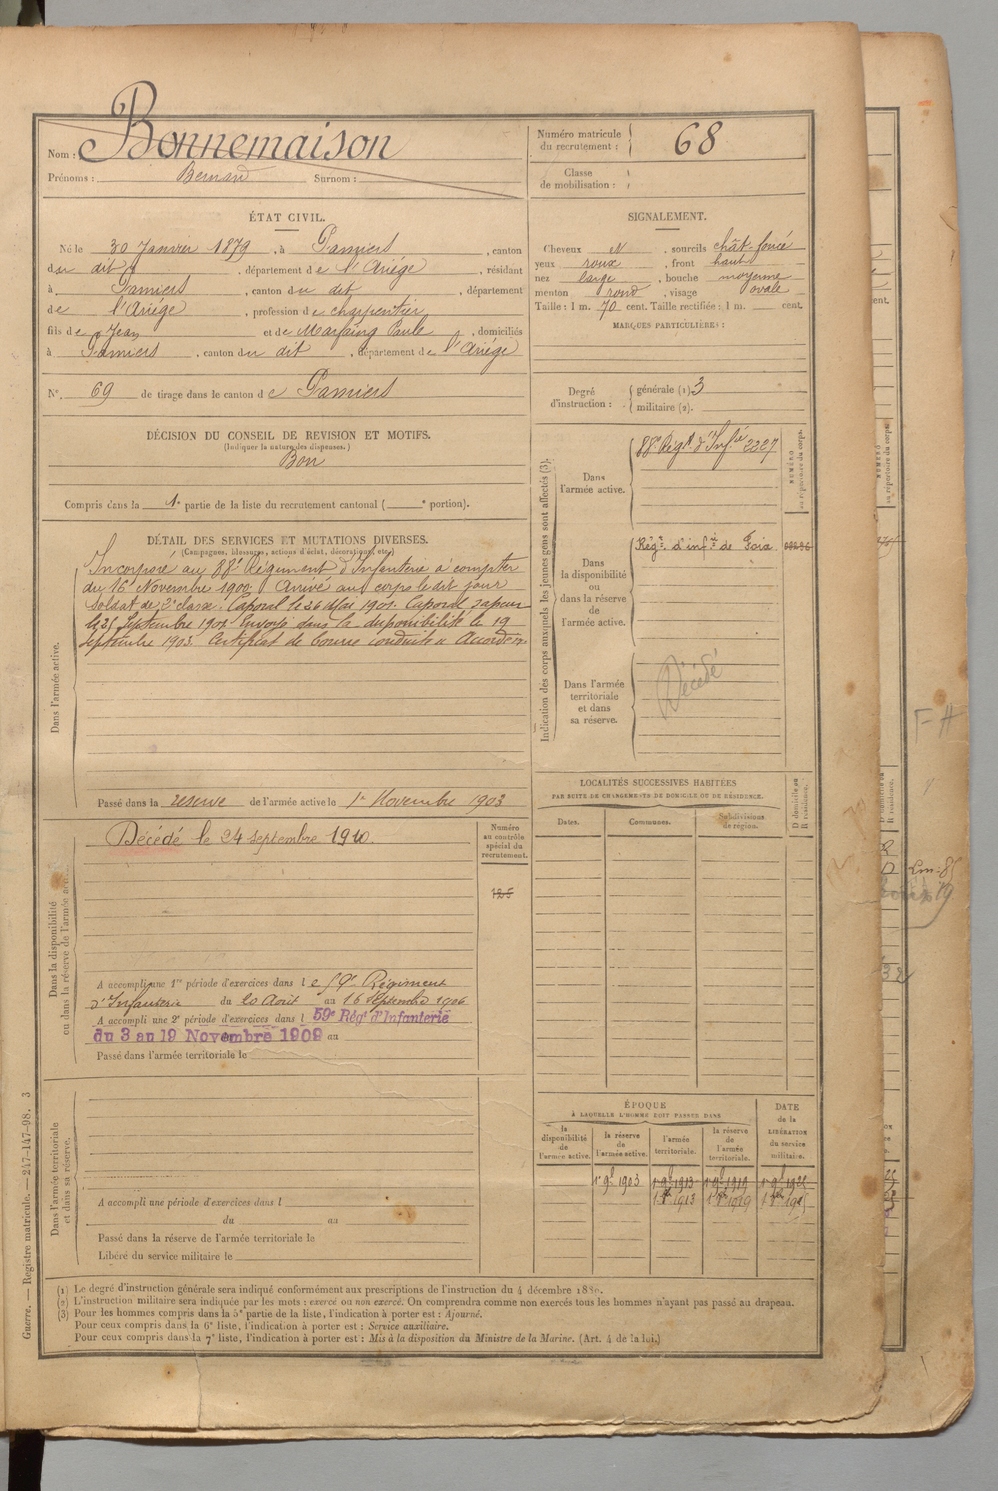 Nom : Bonnemaison
Prénoms : Bernard Surnom :
Numéro matricule du recrutement : 68
Classe de mobilisation :
ÉTAT CIVIL.
Né le 30 Janvier 1879, à Pamiers, canton
du dit, département de l'Ariége, résidant
à Pamiers, canton du dit, département
de l'Ariége, profession de charpentier
fils de Jean et de Marfaing Paule, domiciliés
à Pamiers, canton du dit, département de l'Ariége
N°. 69 de tirage dans le canton de Pamiers
SIGNALEMENT.
Cheveux N, sourcils chât-foncé
yeux roux, front haut
nez large, bouche moyenne
menton rond, visage ovale
Taille : 1 m. 70 cent. Taille rectifiée : 1 m. cent.
MARQUES PARTICULIÈRES :
Degré d'instruction : générale (1). 3
militaire (2).
DÉCISION DU CONSEIL DE REVISION ET MOTIFS.
(Indiquer la nature des dispenses.)
Bon
Compris dans la 1e partie de la liste du recrutement cantonal ( e portion).
DÉTAIL DES SERVICES ET MUTATIONS DIVERSES.
(Campagnes, blessures, actions d'éclat, décorations, etc.)
Dans l'armée active.
Incorporé au 88e Régiment d'Infanterie à compter
du 16 Novembre 1900. Arrivé au corps le dit jour
Soldat de 2e classe. Caporal le 26 Mai 1901. Caporal sapeur
le 25 Septembre 1901 Envoyé dans la disponibilité le 19
septembre 1903. Certificat de bonne conduite "Accordé".
Passé dans la reserve de l'armée active le 1er Novembre 1903
Indication des corps auxquels les jeunes gens sont affectés (3).
NUMÉRO au répertoire du corps.
Dans l'armée active.
88e Régt d'Infie 2227
Dans la disponibilité ou dans la réserve de l'armée active.
Régt. d'infie de Foix
Dans l'armée territoriale et dans sa réserve.
Décédé
Dans la disponibilité ou dans la réserve de l'armée active.
Décédé le 24 septembre 1910.
Numéro au contrôle spécial du recrutement.
125
A accompli une 1re période d'exercices dans le 59e Régiment
d'Infanterie du 20 Août au 16 Septembre 1906
A accompli une 2e période d'exercices dans l 59e Régt d'Infanterie
du 3 au 19 Novembre 1909 au
Passé dans l'armée territoriale le
LOCALITÉS SUCCESSIVES HABITÉES
PAR SUITE DE CHANGEMENTS DE DOMICILE OU DE RÉSIDENCE.
Dates. Communes. Subdivisions de région. D domicile ou R résidence.
Dans l'armée territoriale et dans sa réserve.
A accompli une période d'exercices dans l
du au
Passé dans la réserve de l'armée territoriale le
Libéré du service militaire le
ÉPOQUE
À LAQUELLE L'HOMME DOIT PASSER DANS
DATE de la LIBÉRATION du service militaire.
la disponibilité de l'armée active. la réserve de l'armée active. l'armée territoriale. la réserve de l'armée territoriale.
1er 9bre 1903 1er 9bre 1913 1er 9bre 1919 1er 9bre 1925
1913 1919
(1) Le degré d'instruction générale sera indiqué conformément aux prescriptions de l'instruction du 4 décembre 1889.
(2) L'instruction militaire sera indiquée par les mots : exercé ou non exercé. On comprendra comme non exercés tous les hommes n'ayant pas passé au drapeau.
(3) Pour les hommes compris dans la 5e partie de la liste, l'indication à porter est : Ajourné.
Pour ceux compris dans la 6e liste, l'indication à porter est : Service auxiliaire.
Pour ceux compris dans la 7e liste, l'indication à porter est : Mis à la disposition du Ministre de la Marine. (Art. 4 de la loi.)
Guerre. — Registre matricule. — 247-147-98. 3